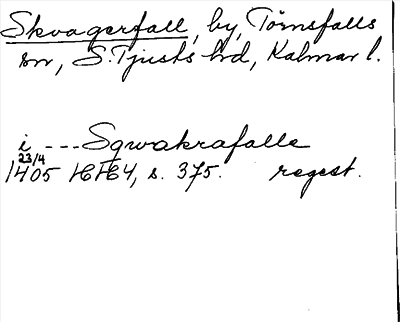 Skvagerfall, by, Törnsfalls
sn, S. Tjusts hd, Kalmar l.
i --- Sqwakrafalle
23/4
1405 HH4, s. 375. regest.